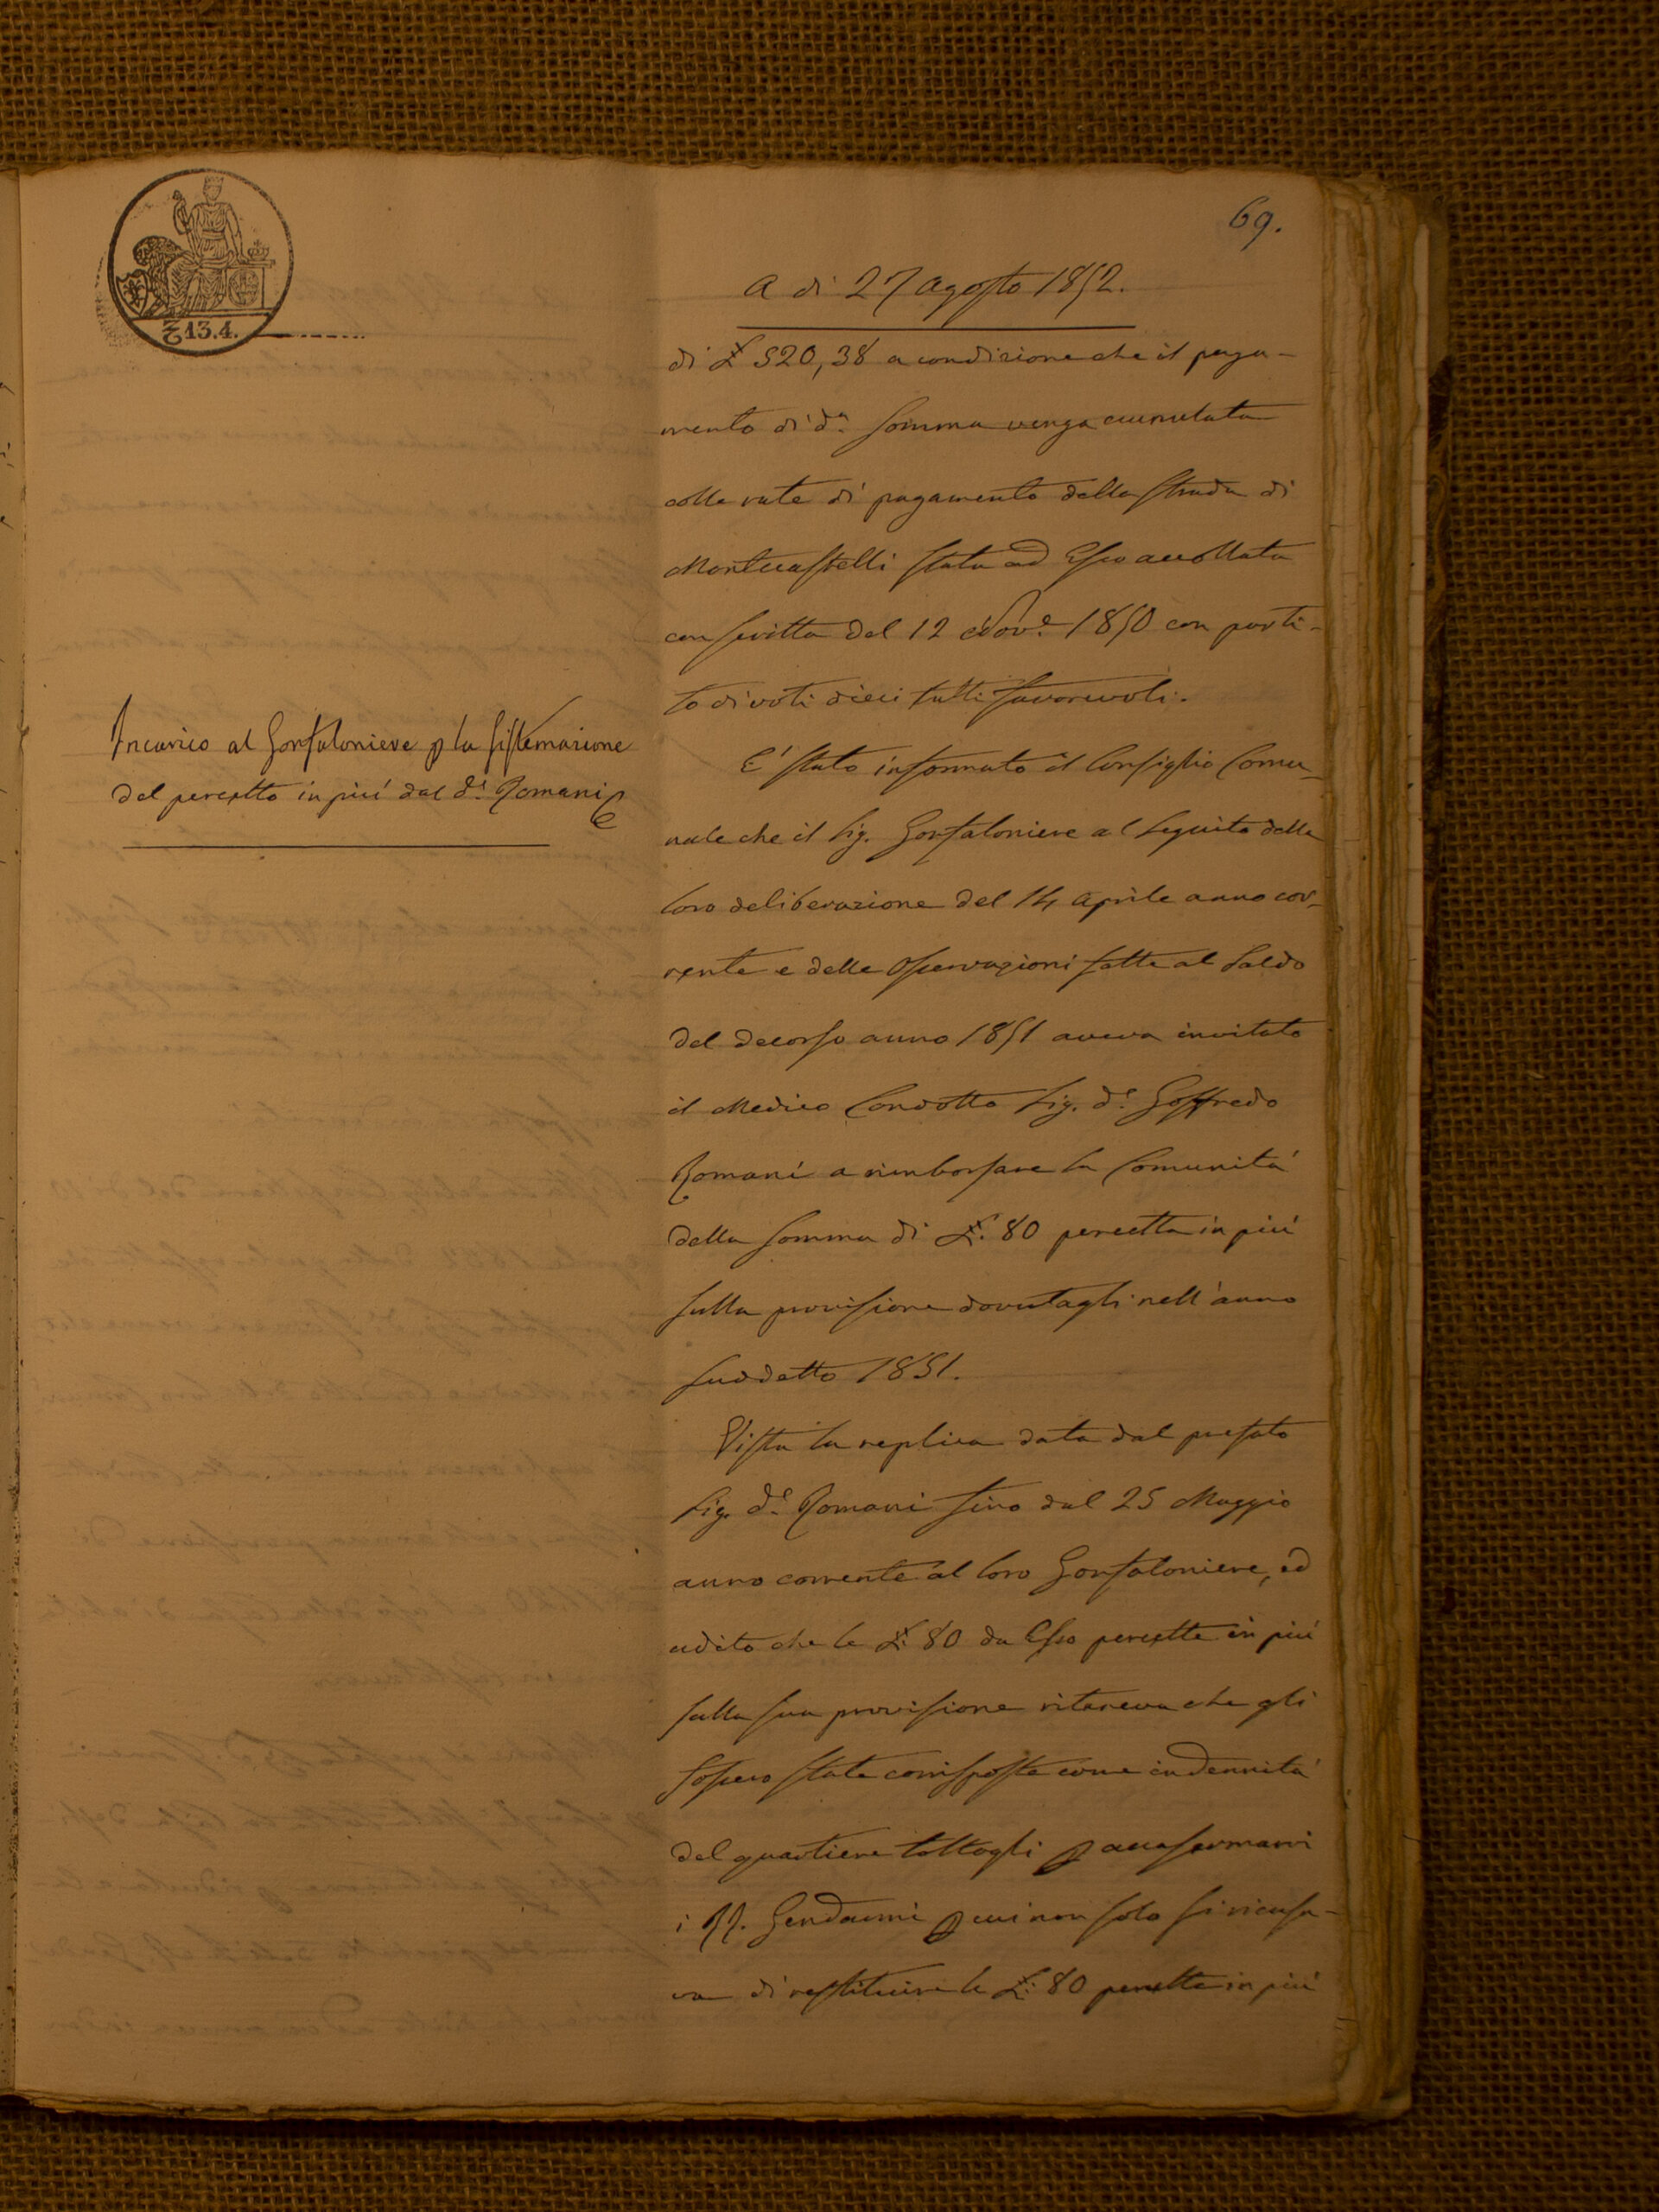 69.
13.4.
A di 27 Agosto 1852.
di £ 520,38 a condizione che il paga-
mento di d.a somma venga cumulata
colle rate di pagamento della strada di
Montecastelli stata ad Esso accollata
con scritta del 12 Nov.e 1850 con parti-
to di voti dieci tutti favorevoli.
Incarico al Gonfaloniere p la sistemazione
del percetto in piú dal d.r Romani
E' stato informato il Consiglio Comu-
nale che il Sig. Gonfaloniere al seguito della
loro deliberazione del 14 Aprile anno cor-
rente e delle osservazioni fatte al saldo
del decorso anno 1851 aveva invitato
il Medico Condotto Sig. d.r Goffredo
Romani a rimborsare la Comunitá
della somma di £. 80 percetta in piú
sulla provisione dovutagli nell'anno
suddetto 1851.
Vista la replica data dal prefato
Sig. d.r Romani sino dal 25 Maggio
anno corrente al loro Gonfaloniere, ed
udito che le £. 80 da Esso percette in piú
sulla sua provisione riteneva che gli
fossero state corrisposte come indennitá
del quartiere toltogli p accasermarvi
i RR. Gendarmi p cui non solo si ricusa-
va di restituire le £. 80 percette in piú